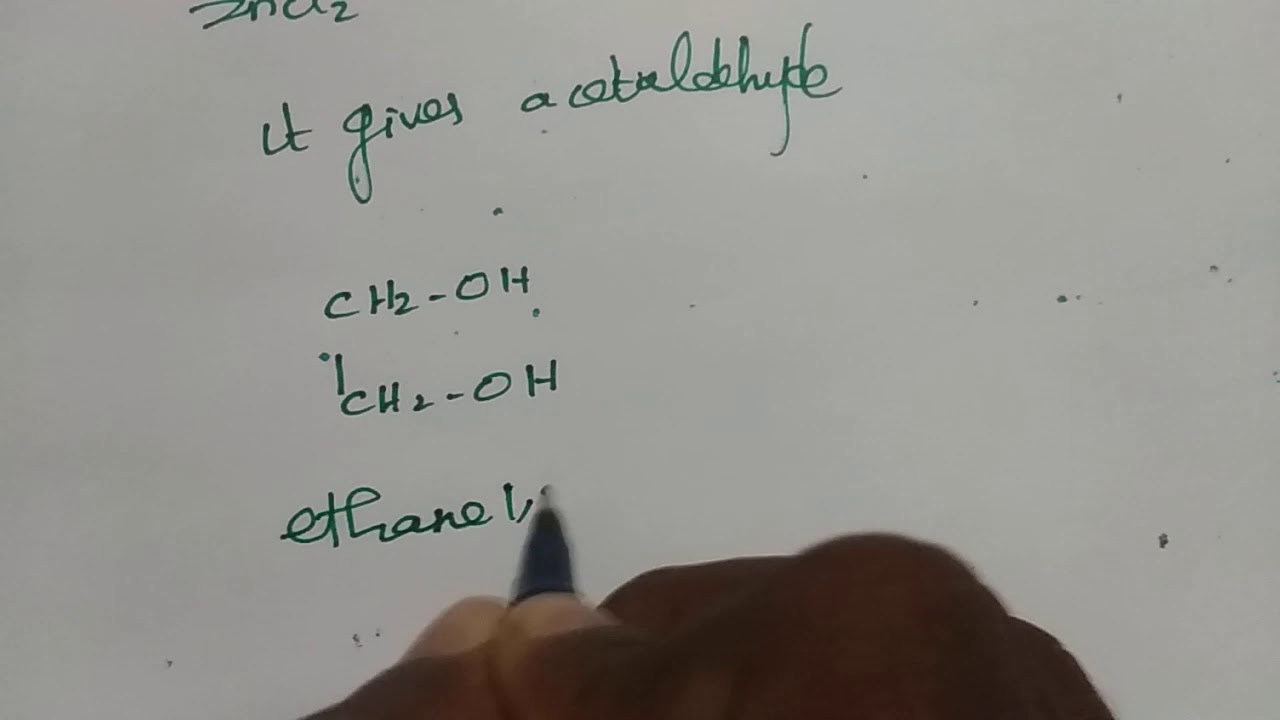 ZnCl2
it gives acetaldehyde
CH2-OH
|
CH2-OH
ethane 1,